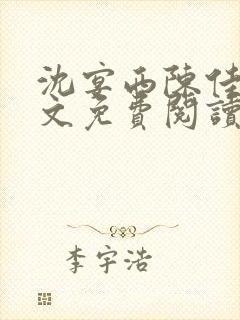 沈宴西陳佳
文免費閱讀
李宇浩